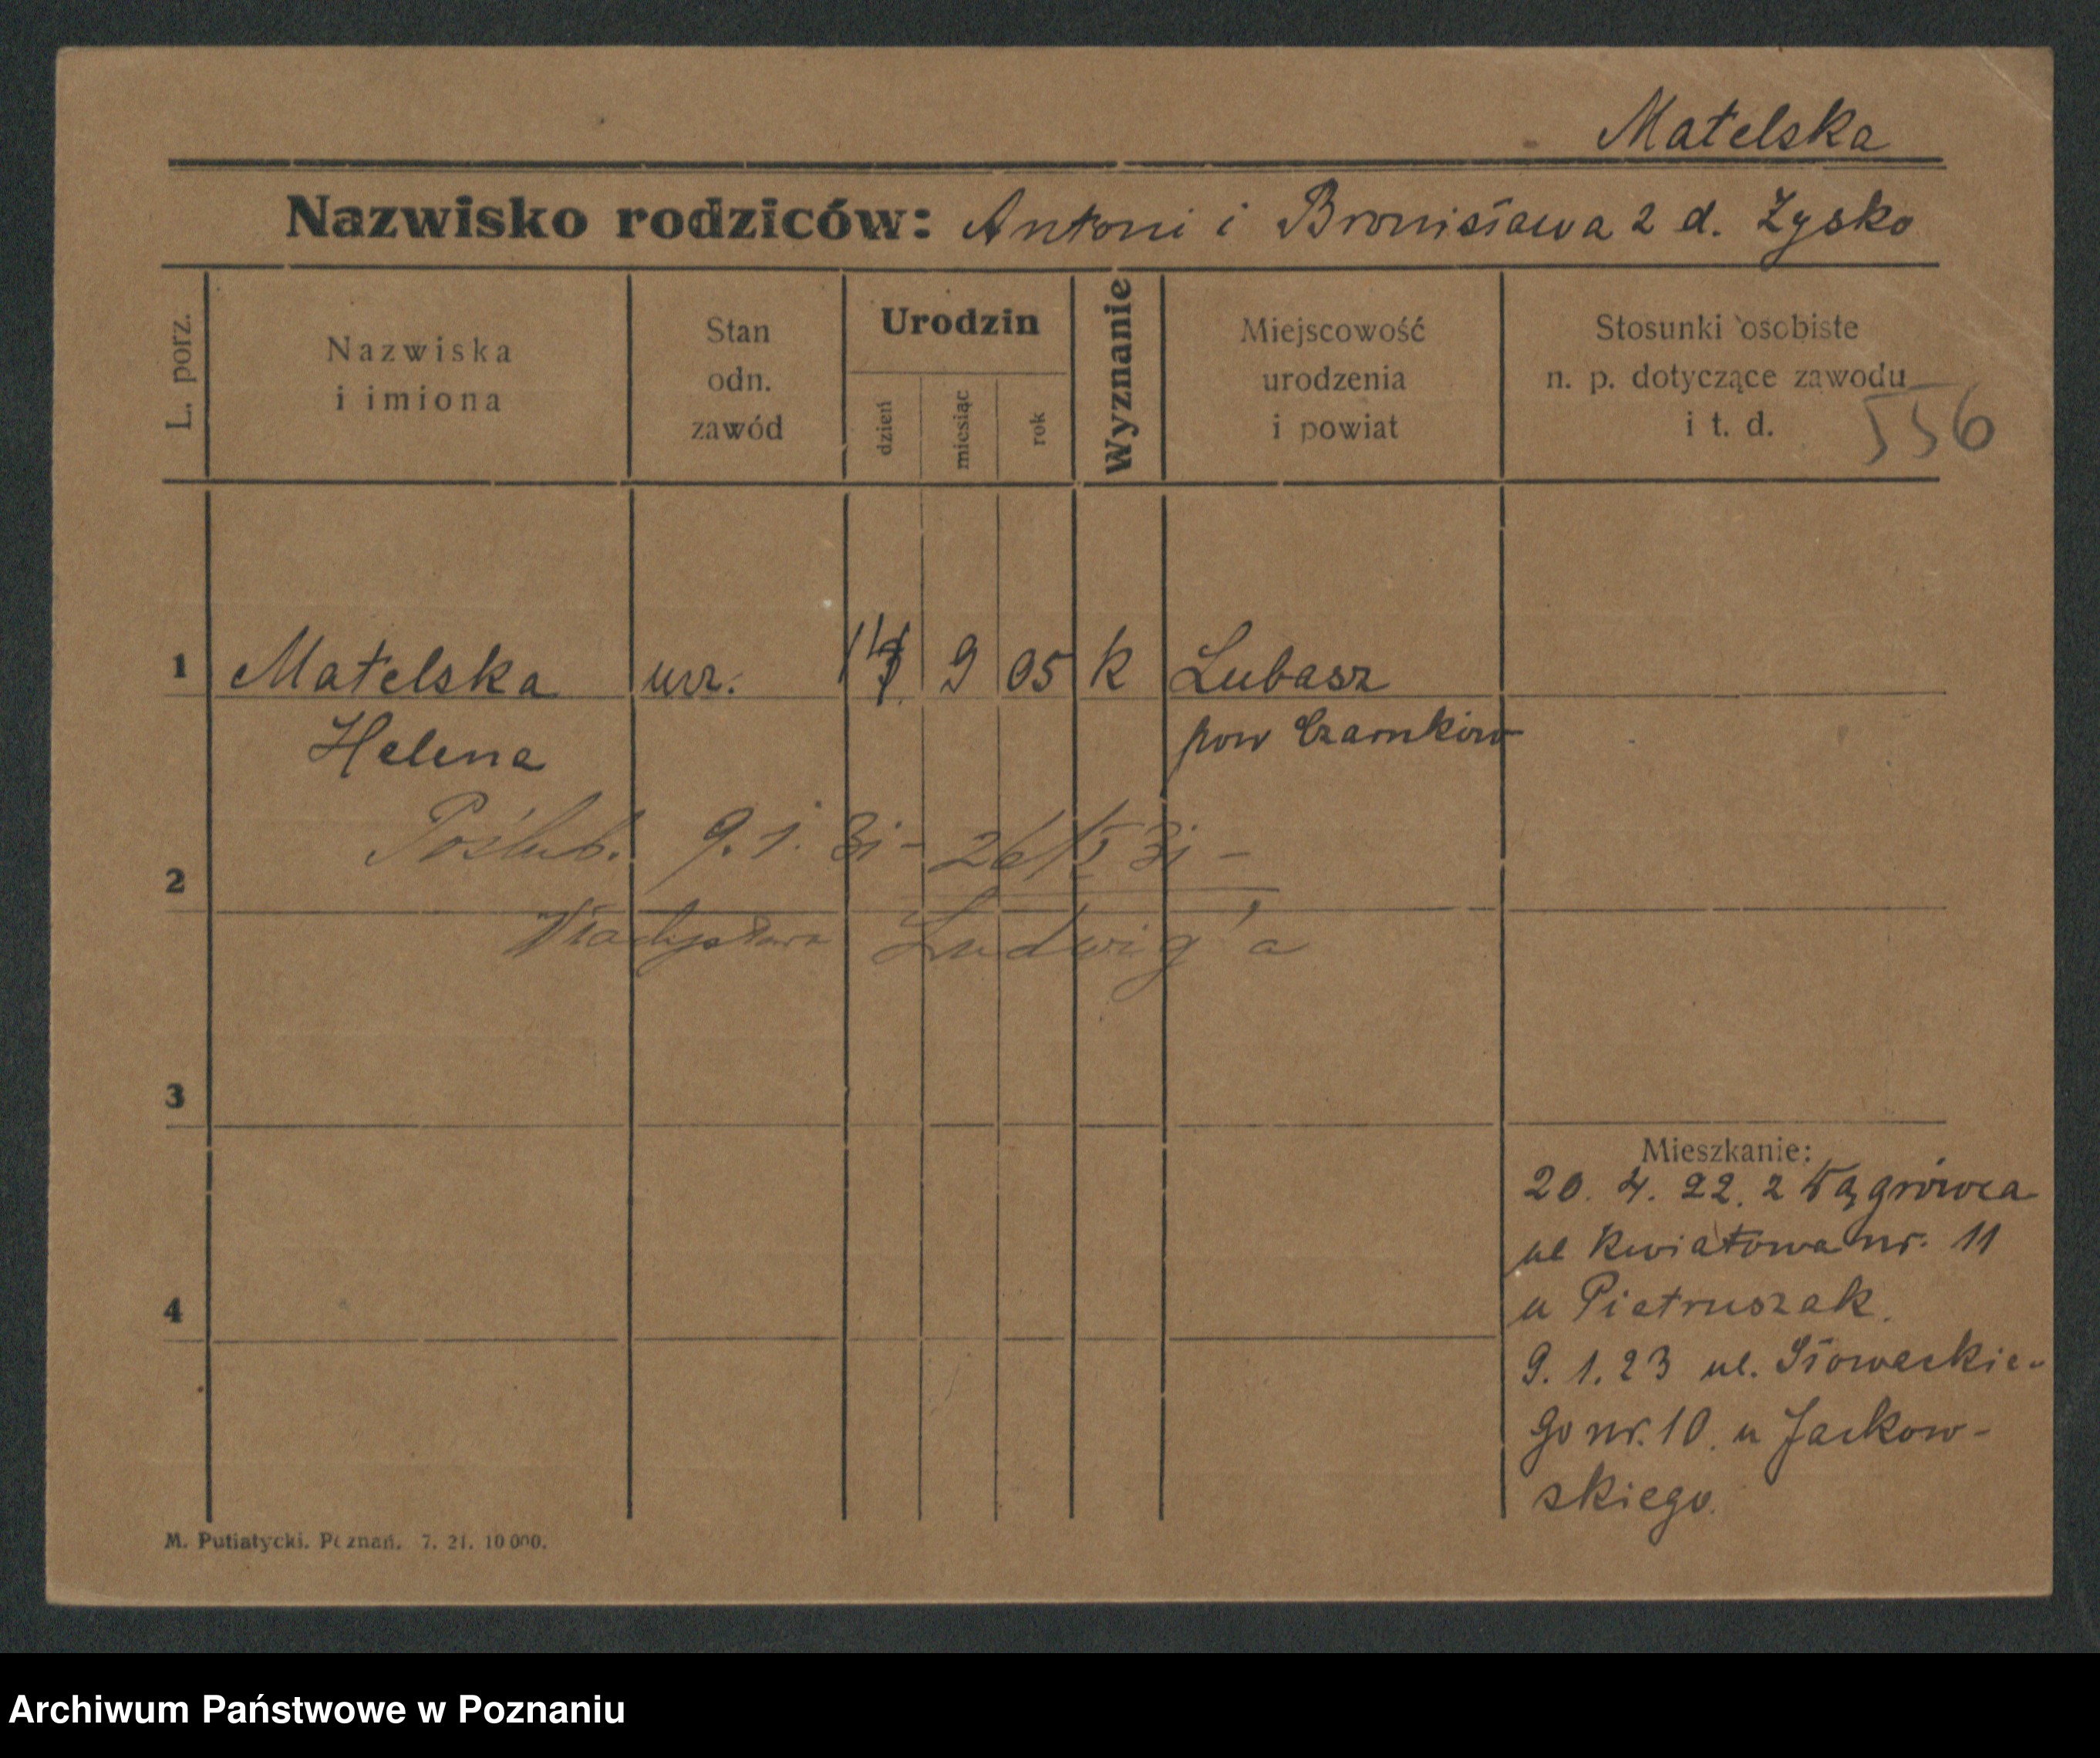 Matelska
Nazwisko rodziców: Antoni i Bronisława z d. Zysko
L. porz.
Nazwiska
i imiona
Stan
odn.
zawód
Urodzin
dzień
miesiąc
rok
Wyznanie
Miejscowość
urodzenia
i powiat
Stosunki osobiste
n. p. dotyczące zawodu
i t. d.
556
1 Matelska urz. 9 05 k Lubasz
Helena pow Czarnków
Poślub. 9.1.31 - 26/I 31 -
2
Władysława Ludwig'a
3
Mieszkanie:
20. 4. 22. z Wągrówca
ul Kwiatowa nr. 11
4 u Pietruszak.
9. 1. 23 ul. Słowackie-
go nr. 10. u Jackow-
skiego.
M. Putiatycki. Poznań. 7. 21. 10 000.
Archiwum Państwowe w Poznaniu